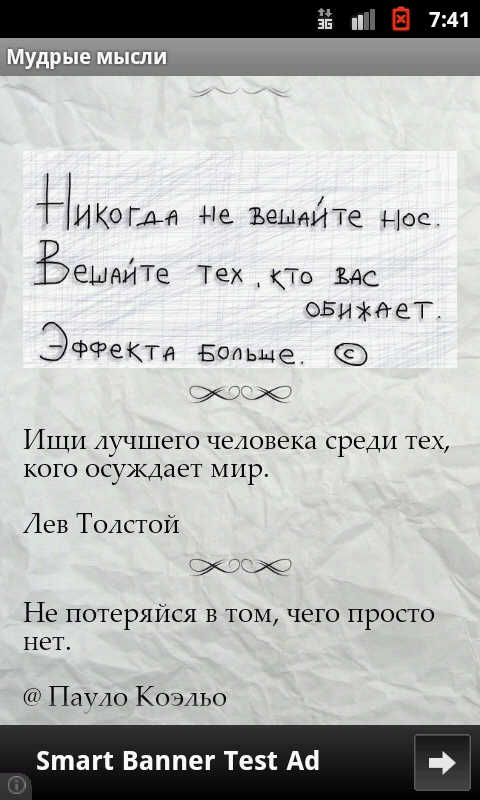 3G 7:41
Мудрые мысли
Никогда не вешайте нос.
Вешайте тех, кто вас
обижает.
Эффекта больше. ©
Ищи лучшего человека среди тех,
кого осуждает мир.
Лев Толстой
Не потеряйся в том, чего просто
нет.
@ Пауло Коэльо
Smart Banner Test Ad